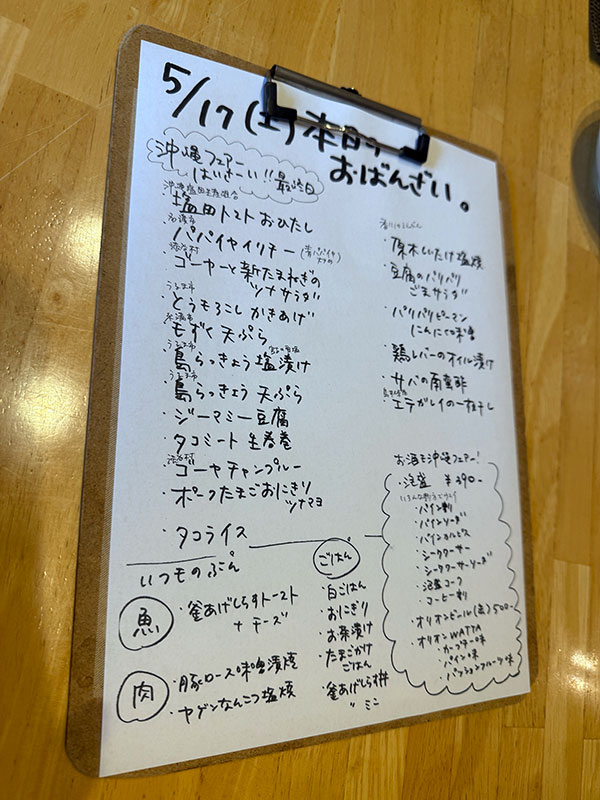 5/17(土)本日の
おばんざい。
沖縄フェアー
はいさーい!!最終日
・塩田トマトおひたし
・パパイヤイリチー(青パパイヤ
・ゴーヤーと新たまねぎの
ツナサラダ
うるま市
・とうもろこしかきあげ
糸満市
・もずく天ぷら
うるま市
・島らっきょう塩漬け
うるま市
・島らっきょう天ぷら
・ジーマミー豆腐
・タコミート生春巻
・ゴーヤチャンプルー
・ポークたまごおにぎり
ツナマヨ
・タコライス
・原木しいたけ塩焼
・豆腐のパリパリ
ごまサラダ
・パリパリピーマン
にんにく味噌
・鶏レバーのオイル漬け
・サバの南蛮酢
・エテガレイの一夜干し
お酒も沖縄フェアー!
・泡盛 ¥390-
・パイン割
・パインソーダ
・パインカルピス
・シークワーサー
・シークワーサーソーダ
・泡盛コーク
・コーヒー割
・オリオンビール(生)500-
・オリオンWATTA
・カーブチー味
・パイン味
・パッションフルーツ味
いつものぶん
魚
・釜あげしらすトースト
+チーズ
肉
・豚ロース味噌漬焼
・ヤゲンなんこつ塩焼
ごはん
・白ごはん
・おにぎり
・お茶漬け
・たまごかけ
ごはん
・釜あげしらす丼
〃 ミニ